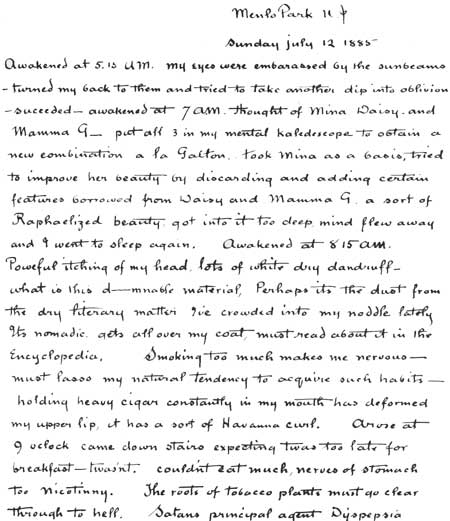 Menlo Park N.J
Sunday july 12 1885
Awakened at 5.15 AM. my eyes were embarassed by the sunbeams
-turned my back to them and tried to take another dip into oblivion
-succeeded- awakened at 7 AM. thought of Mina Daisy. and
Mamma G- put all 3 in my mental kaledescope to obtain a
new combination a la Galton. took Mina as a basis, tried
to improve her beauty by discarding and adding certain
features borrowed from Daisy and Mamma G. a sort of
Raphaelized beauty, got into it too deep, mind flew away
and I went to sleep again. Awakened at 8 15 AM.
Poweful itching of my head, lots of white dry dandruff-
what is this d—mnable material, Perhaps its the dust from
the dry literary matter I've crowded into my noddle lately
Its nomadic. gets all over my coat, must read about it in the
Encyclopedia. Smoking too much makes me nervous—
must lasso my natural tendency to acquire such habits—
holding heavy cigar constantly in my mouth has deformed
my upper lip, it has a sort of Havanna curl. Arose at
9 oclock came down stairs expecting twas too late for
breakfast—twasn't. couldn't eat much, nerves of stomach
too nicotinny. The roots of tobacco plants must go clear
through to hell. Satans principal agent Dyspepsia